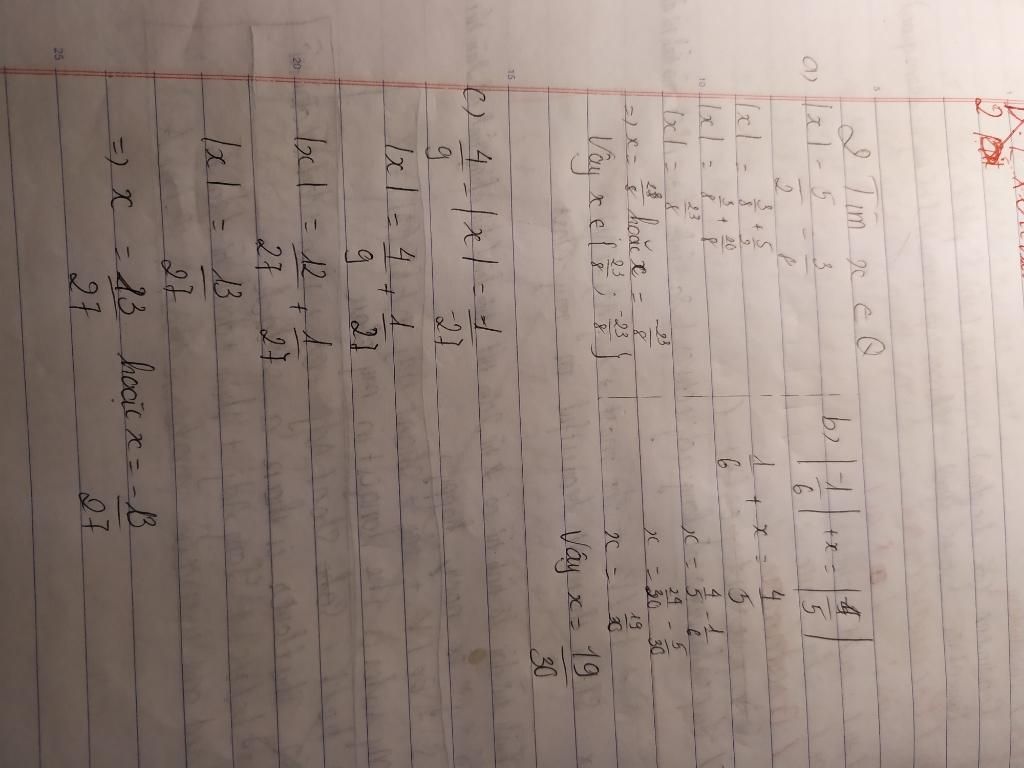 2 Tìm x ∈ Q
a) |x| - 5/2 = 3/8
|x| = 3/8 + 5/2
|x| = 3/8 + 20/8
|x| = 23/8
=) x = 23/8 hoặc x = -23/8
Vậy x ∈ { 23/8 ; -23/8 }
b) |-1/6| + x = |4/5|
1/6 + x = 4/5
x = 4/5 - 1/6
x = 24/30 - 5/30
x = 19/30
Vậy x = 19/30
c) 4/9 - |x| = -1/27
|x| = 4/9 + 1/27
|x| = 12/27 + 1/27
|x| = 13/27
=) x = 13/27 hoặc x = -13/27